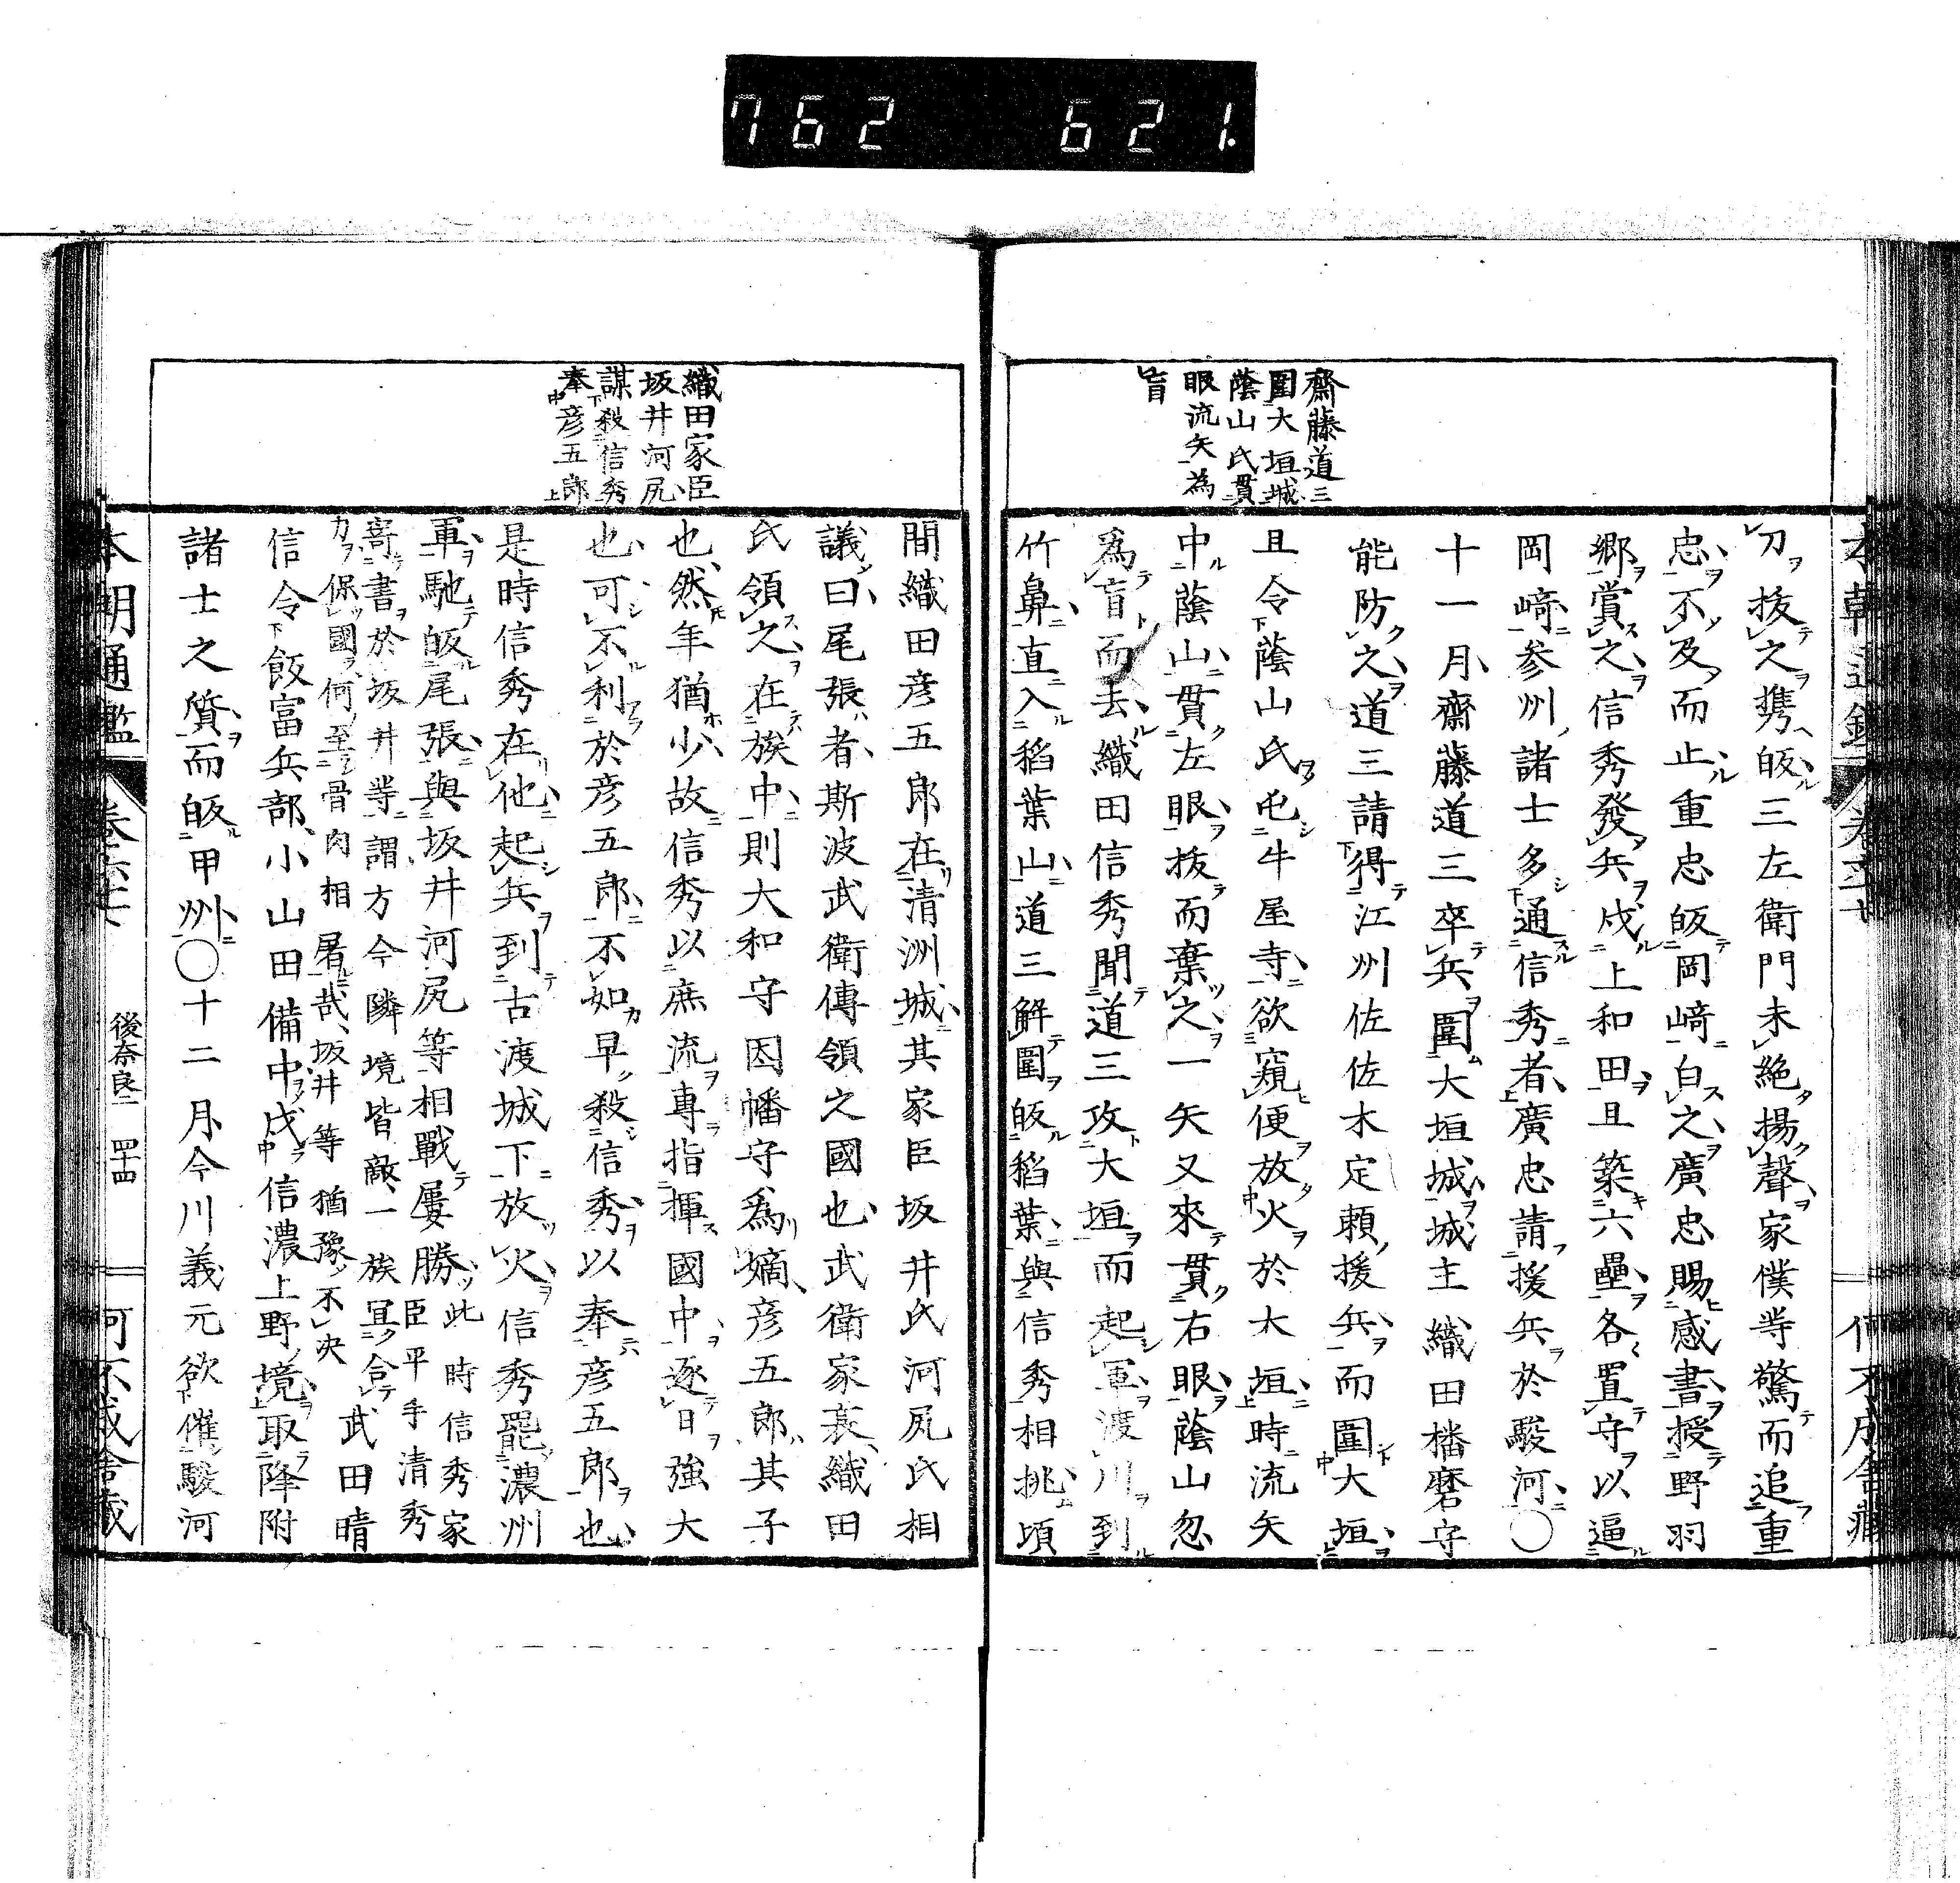 762 621.
齋藤道三
圍大垣城
蔭山氏貫
眼流矢為
盲
刀拔之携皈三左衛門未絶揚聲家僕等驚而追重
忠不及而止重忠皈岡﨑白之廣忠賜感書授野羽
郷賞之信秀發兵戍上和田且築六壘各置守以逼
岡﨑参州諸士多通信秀者廣忠請援兵於駿河〇
十一月齋藤道三卒兵圍大垣城城主織田播磨守
能防之道三請得江州佐佐木定頼援兵而圍大垣
且令蔭山氏屯牛屋寺欲窺便放火於大垣時流矢
中蔭山貫左眼拔而棄之一矢又來貫右眼蔭山忽
為盲而去織田信秀聞道三攻大垣而起軍渡川到
竹鼻直入稻葉山道三解圍皈稻葉與信秀相挑頃
織田家臣
坂井河尻
謀殺信秀
奉彦五郎
間織田彦五郎在清洲城其家臣坂井氏河尻氏相
議曰尾張者斯波武衛傳領之國也武衛家衰織田
氏領之在族中則大和守因幡守爲嫡彦五郎其子
也然年猶少故信秀以庶流專指揮國中逐日強大
也可不利於彦五郎不如早殺信秀以奉彦五郎也
是時信秀在他起兵到古渡城下放火信秀罷濃州
軍馳皈尾張與坂井河尻等相戰屢勝此時信秀家
臣平手清秀
寄書於坂井等謂方今隣境皆敵一族冝合
力保國何至骨肉相屠哉坂井等猶豫不决
武田晴
信令飯富兵部小山田備中戍信濃上野境取降附
諸士之質而皈甲州〇十二月今川義元欲催駿河
本朝通鑑 卷六十七 後奈良二 四十四